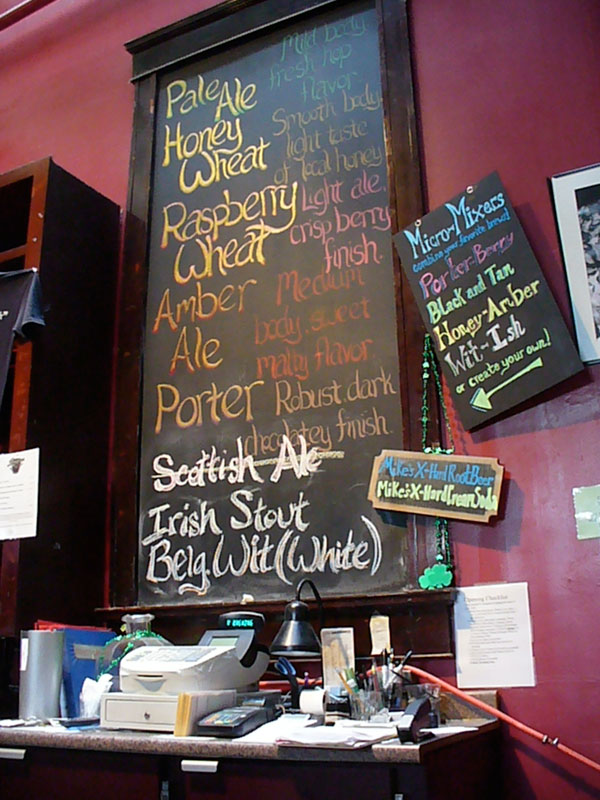 Pale Ale
Mild body
fresh hop
flavor
Honey
Wheat
Smooth body
light taste
of local honey
Raspberry
Wheat
Light ale,
crisp berry
finish.
Amber
Ale
Medium
body, sweet
malty flavor
Porter
Robust, dark
chocolatey finish
Scottish Ale
Irish Stout
Belg. Wit (White)
Micro-Mixers
combine your favorite brews!
Porter-Berry
Black and Tan
Honey-Amber
Wit-Ish
or create your own!
Mike's X-Hard Root Beer
Mike's X-Hard Cream Soda
Opening Checklist